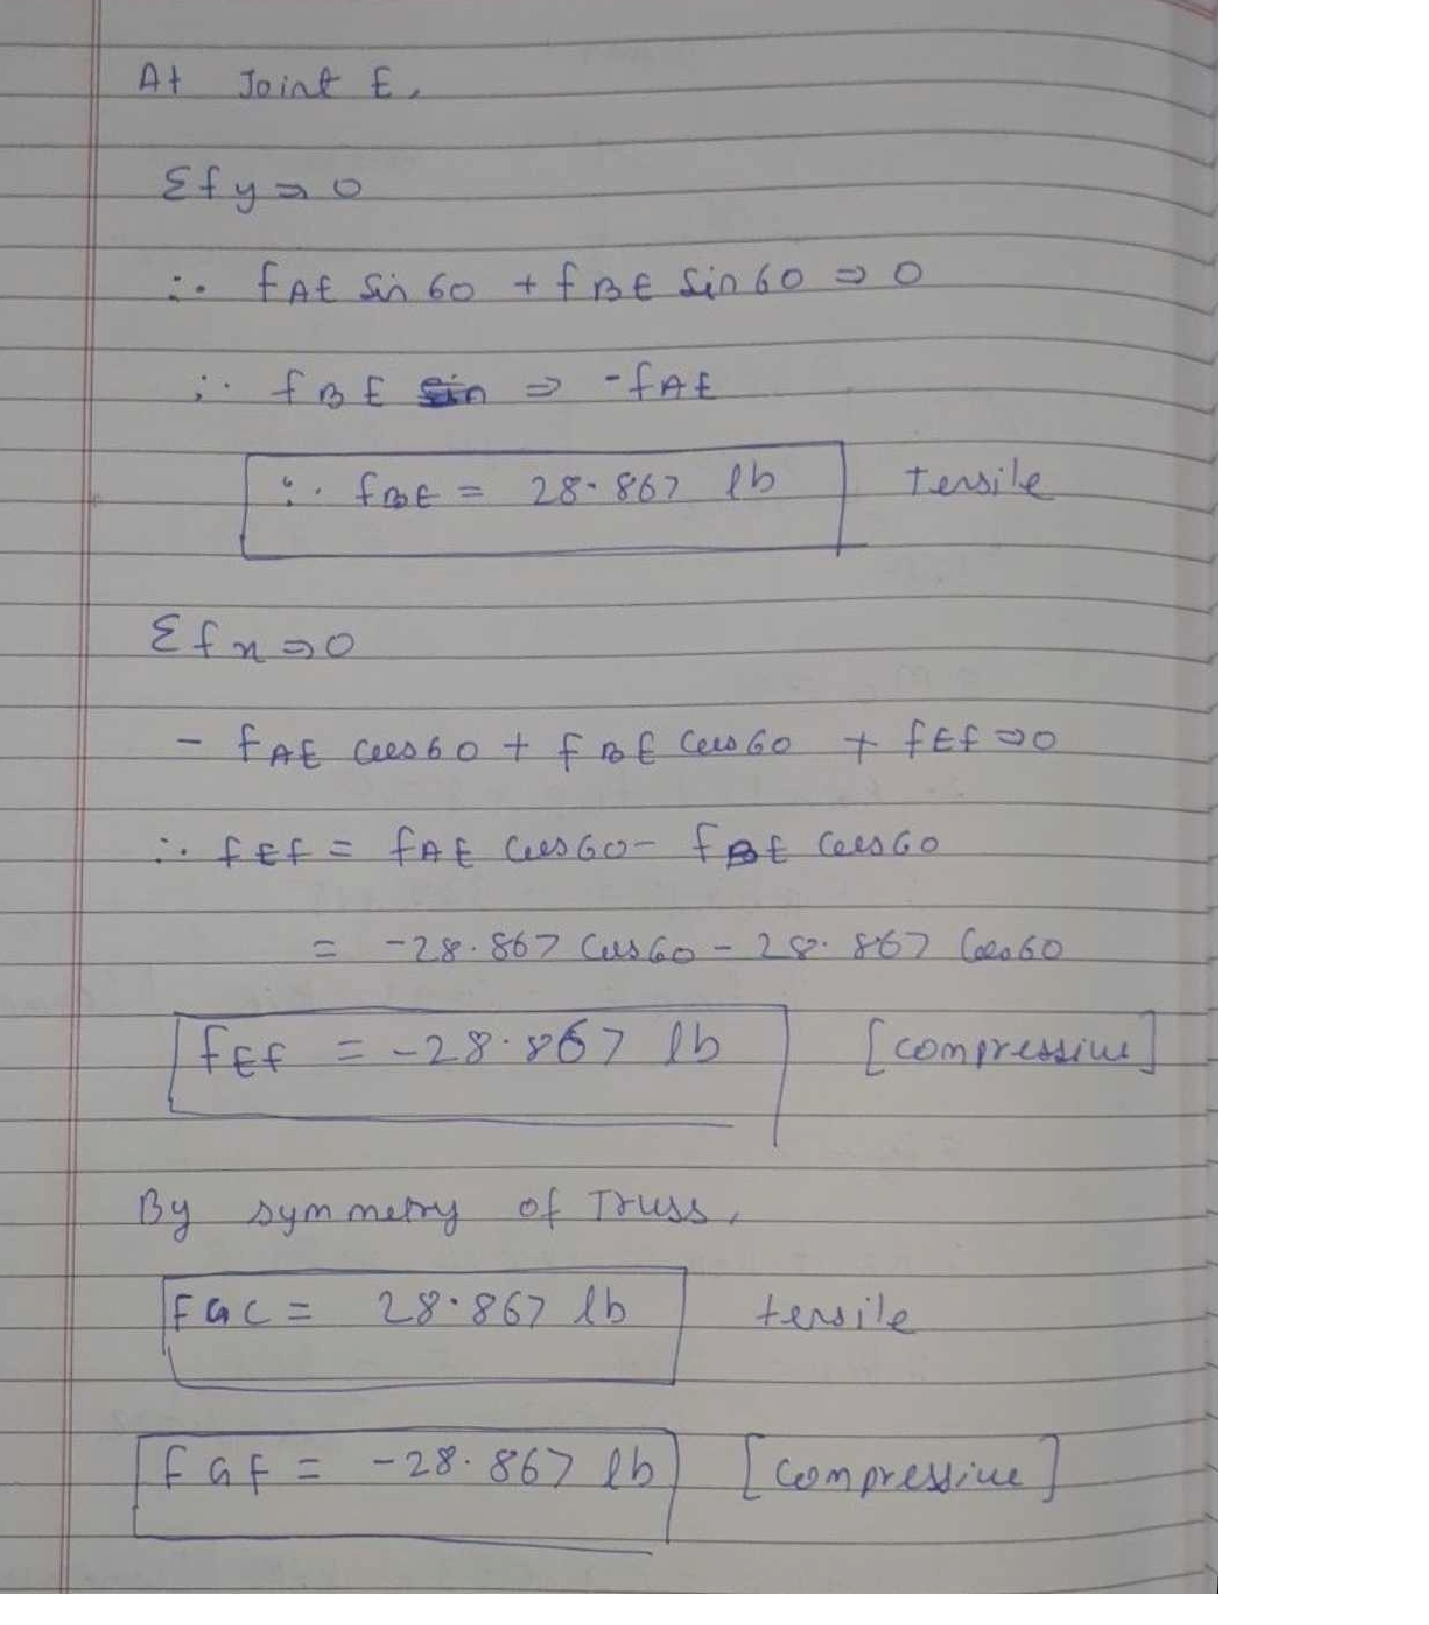 At Joint E,
Σfy ⇒ 0
∴ fAE Sin 60 + fBE Sin 60 ⇒ 0
∴ fBE ⇒ -fAE
∴ fBE = 28.867 lb tensile
Σfx ⇒ 0
- fAE cos60 + fBE cos60 + fEf ⇒ 0
∴ fEf = fAE cos60 - fBE cos60
= -28.867 cos60 - 28.867 cos60
fEf = -28.867 lb [compressive]
By symmetry of Truss,
FGC = 28.867 lb tensile
fGF = -28.867 lb [compressive]